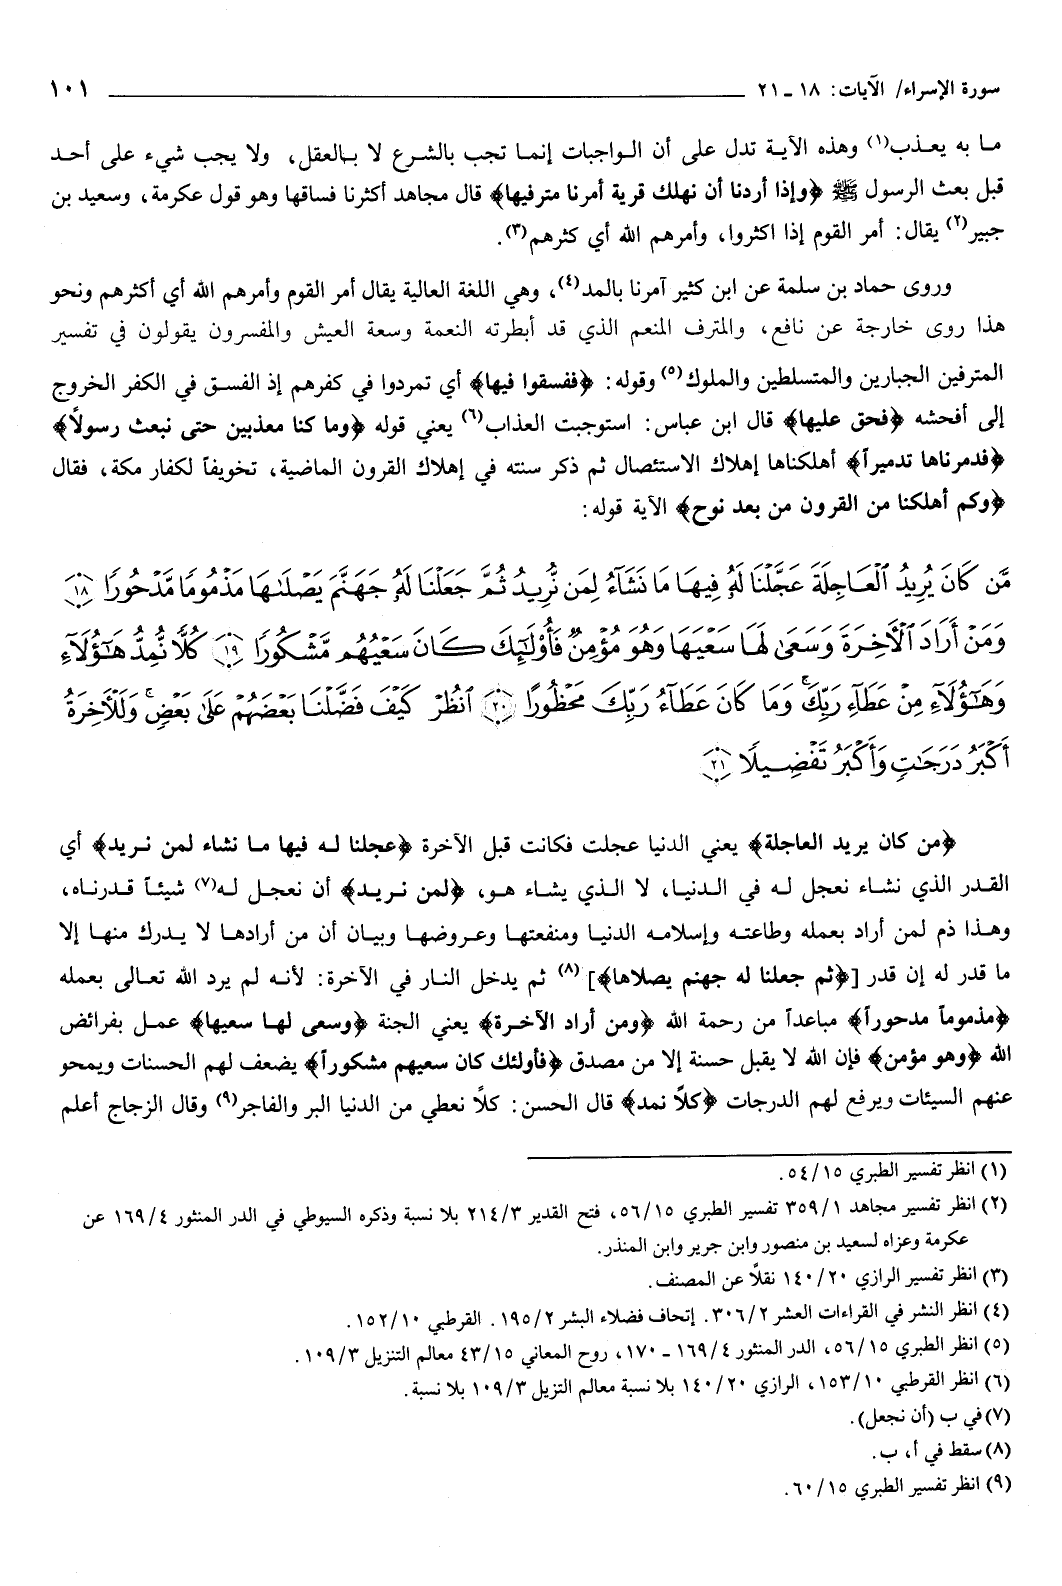 سورة الإسراء/ الآيات: ١٨ ـ ٢١ ١٠١
ما به يعذب(١) وهذه الآية تدل على أن الواجبات إنما تجب بالشرع لا بالعقل، ولا يجب شيء على أحد
قبل بعث الرسول ﷺ ﴿وإذا أردنا أن نهلك قرية أمرنا مترفيها﴾ قال مجاهد أكثرنا فساقها وهو قول عكرمة، وسعيد بن
جبير(٢) يقال: أمر القوم إذا اكثروا، وأمرهم الله أي كثرهم(٣).
وروى حماد بن سلمة عن ابن كثير آمرنا بالمد(٤)، وهي اللغة العالية يقال أمر القوم وأمرهم الله أي أكثرهم ونحو
هذا روى خارجة عن نافع، والمترف المنعم الذي قد أبطرته النعمة وسعة العيش والمفسرون يقولون في تفسير
المترفين الجبارين والمتسلطين والملوك(٥) وقوله: ﴿ففسقوا فيها﴾ أي تمردوا في كفرهم إذ الفسق في الكفر الخروج
إلى أفحشه ﴿فحق عليها﴾ قال ابن عباس: استوجبت العذاب(٦) يعني قوله ﴿وما كنا معذبين حتى نبعث رسولاً﴾
﴿فدمرناها تدميراً﴾ أهلكناها إهلاك الاستئصال ثم ذكر سنته في إهلاك القرون الماضية، تخويفاً لكفار مكة، فقال
﴿وكم أهلكنا من القرون من بعد نوح﴾ الآية قوله:
مَّن كَانَ يُرِيدُ ٱلْعَاجِلَةَ عَجَّلْنَا لَهُۥ فِيهَا مَا نَشَآءُ لِمَن نُّرِيدُ ثُمَّ جَعَلْنَا لَهُۥ جَهَنَّمَ يَصْلَىٰهَا مَذْمُومًا مَّدْحُورًا ١٨
وَمَنْ أَرَادَ ٱلْأَخِرَةَ وَسَعَىٰ لَهَا سَعْيَهَا وَهُوَ مُؤْمِنٌ فَأُو۟لَٰٓئِكَ كَانَ سَعْيُهُم مَّشْكُورًا ١٩ كُلًّا نُّمِدُّ هَٰٓؤُلَآءِ
وَهَٰٓؤُلَآءِ مِنْ عَطَآءِ رَبِّكَ ۚ وَمَا كَانَ عَطَآءُ رَبِّكَ مَحْظُورًا ٢٠ ٱنظُرْ كَيْفَ فَضَّلْنَا بَعْضَهُمْ عَلَىٰ بَعْضٍ ۚ وَلَلْأَخِرَةُ
أَكْبَرُ دَرَجَٰتٍ وَأَكْبَرُ تَفْضِيلًا ٢١
﴿من كان يريد العاجلة﴾ يعني الدنيا عجلت فكانت قبل الآخرة ﴿عجلنا له فيها ما نشاء لمن نريد﴾ أي
القدر الذي نشاء نعجل له في الدنيا، لا الذي يشاء هو، ﴿لمن نريد﴾ أن نعجل له(٧) شيئاً قدرناه،
وهذا ذم لمن أراد بعمله وطاعته وإسلامه الدنيا ومنفعتها وعروضها وبيان أن من أرادها لا يدرك منها إلا
ما قدر له إن قدر [﴿ثم جعلنا له جهنم يصلاها﴾](٨) ثم يدخل النار في الآخرة: لأنه لم يرد الله تعالى بعمله
﴿مذموماً مدحوراً﴾ مباعداً من رحمة الله ﴿ومن أراد الآخرة﴾ يعني الجنة ﴿وسعى لها سعيها﴾ عمل بفرائض
الله ﴿وهو مؤمن﴾ فإن الله لا يقبل حسنة إلا من مصدق ﴿فأولئك كان سعيهم مشكوراً﴾ يضعف لهم الحسنات ويمحو
عنهم السيئات ويرفع لهم الدرجات ﴿كلاً نمد﴾ قال الحسن: كلاً نعطي من الدنيا البر والفاجر(٩) وقال الزجاج أعلم
(١) انظر تفسير الطبري ٥٤/١٥.
(٢) انظر تفسير مجاهد ٣٥٩/١ تفسير الطبري ٥٦/١٥، فتح القدير ٢١٤/٣ بلا نسبة وذكره السيوطي في الدر المنثور ١٦٩/٤ عن
عكرمة وعزاه لسعيد بن منصور وابن جرير وابن المنذر.
(٣) انظر تفسير الرازي ١٤٠/٢٠ نقلاً عن المصنف.
(٤) انظر النشر في القراءات العشر ٣٠٦/٢. إتحاف فضلاء البشر ١٩٥/٢. القرطبي ١٥٢/١٠.
(٥) انظر الطبري ٥٦/١٥، الدر المنثور ١٦٩/٤ ـ ١٧٠، روح المعاني ٤٣/١٥ معالم التنزيل ١٠٩/٣.
(٦) انظر القرطبي ١٥٣/١٠، الرازي ١٤٠/٢٠ بلا نسبة معالم التزيل ١٠٩/٣ بلا نسبة.
(٧) في ب (أن نجعل).
(٨) سقط في أ، ب.
(٩) انظر تفسير الطبري ٦٠/١٥.